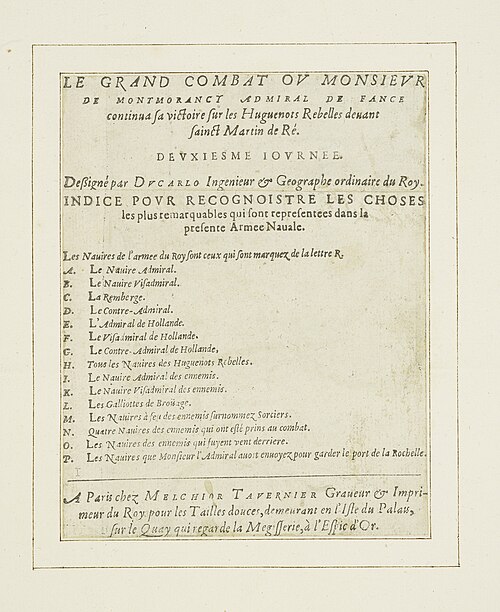 LE GRAND COMBAT OV MONSIEVR
DE MONTMORANCY ADMIRAL DE FANCE
continua sa victoire sur les Huguenots Rebelles deuant
sainct Martin de Ré.
DEVXIESME IOVRNEE.
Deßigné par DVCARLO Ingenieur & Geographe ordinaire du Roy.
INDICE POVR RECOGNOISTRE LES CHOSES
les plus remarquables qui sont representees dans la
presente Armee Nauale.
Les Nauires de l'armee du Roy sont ceux qui sont marquez de la lettre R.
A. Le Nauire Admiral.
B. Le Nauire Visadmiral.
C. La Remberge.
D. Le Contre-Admiral.
E. L'Admiral de Hollande.
F. Le Visadmiral de Hollande.
G. Le Contre-Admiral de Hollande,
H. Tous les Nauires des Huguenots Rebelles.
I. Le Nauire Admiral des ennemis.
K. Le Nauire Visadmiral des ennemis.
L. Les Galliottes de Brouage.
M. Les Nauires à feu des ennemis surnommez Sorciers.
N. Quatre Nauires des ennemis qui ont esté prins au combat.
O. Les Nauires des ennemis qui fuyent vent derriere.
P. Les Nauires que Monsieur l'Admiral auoit enuoyez pour garder le port de la Rochelle.
A Paris chez MELCHIOR TAVERNIER Graueur & Impri-
meur du Roy pour les Tailles douces, demeurant en l'Isle du Palais,
sur le Quay qui regarde la Megisserie, à l'Espic d'Or.